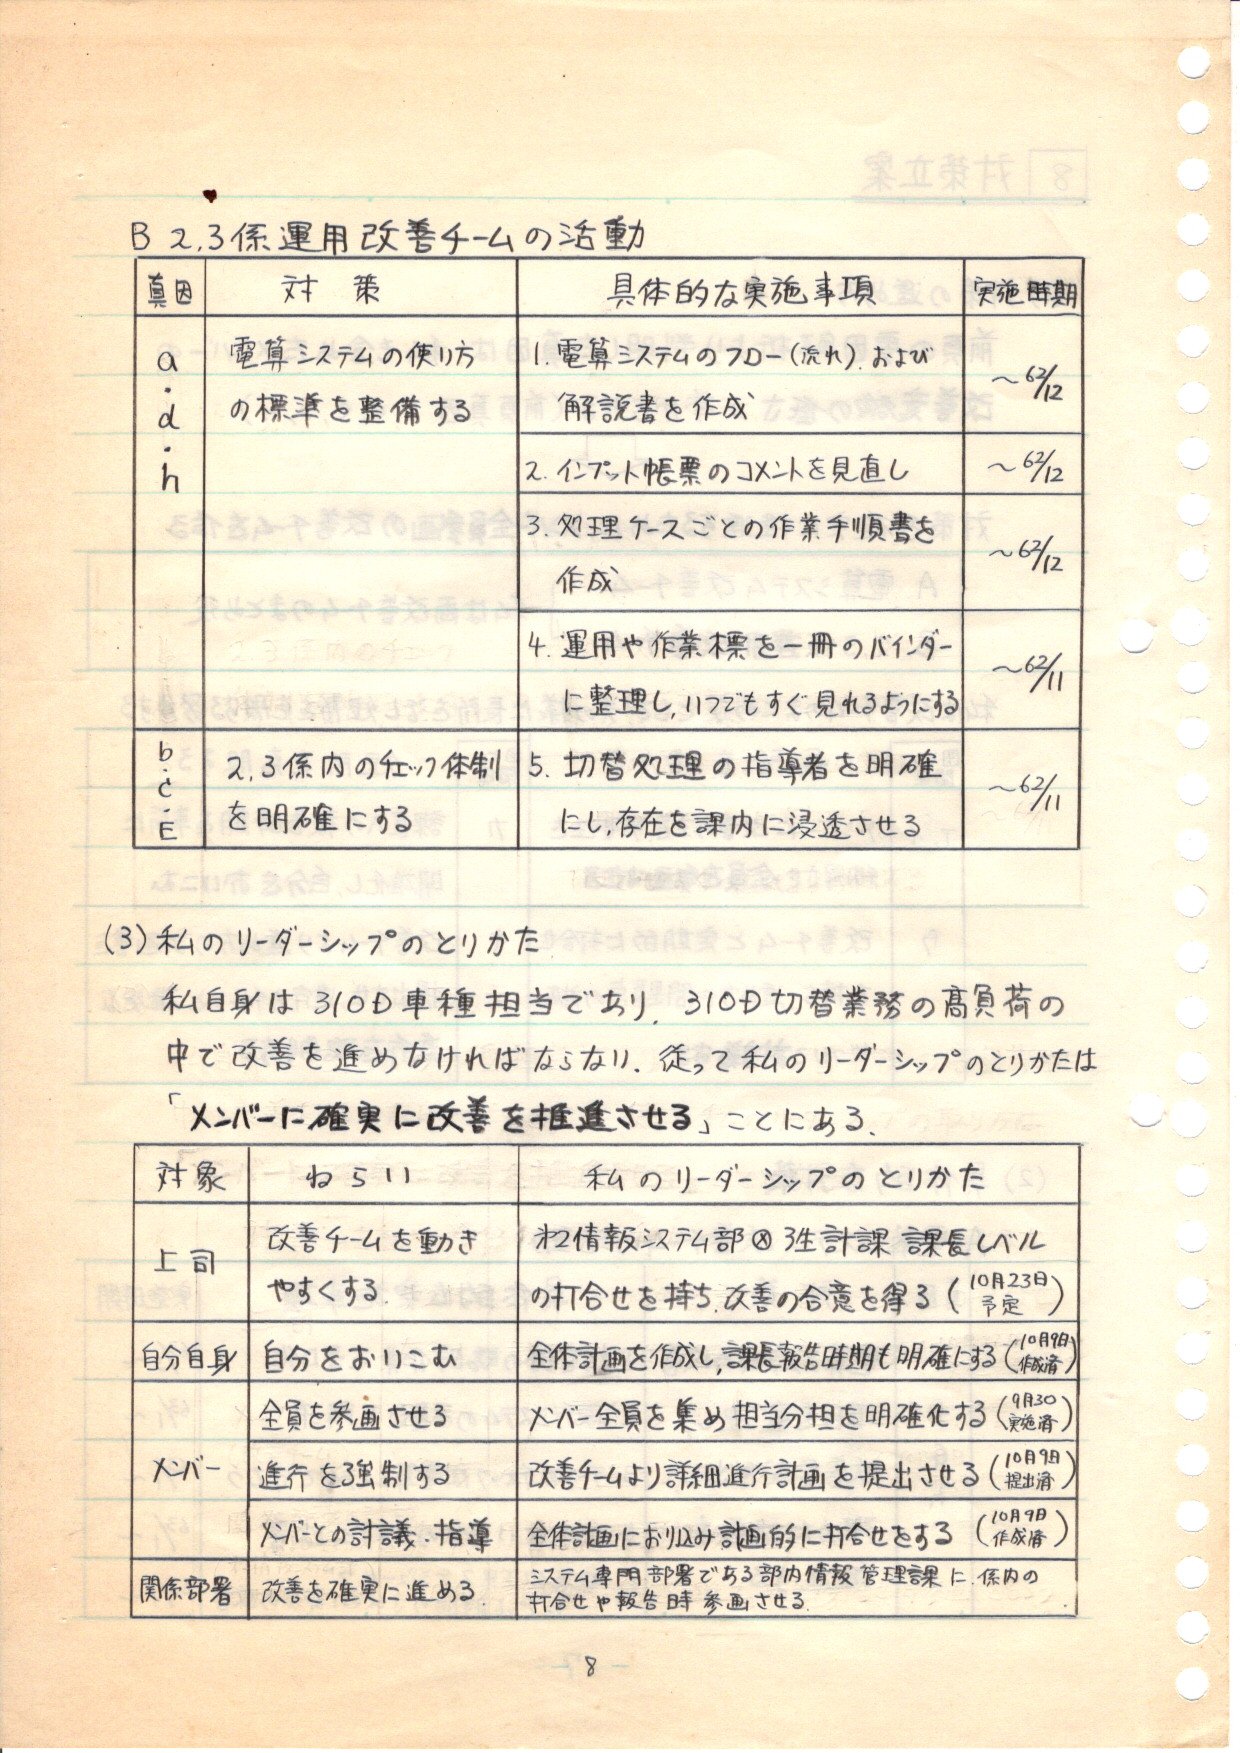 B 2,3係運用改善チームの活動
真因 対策 具体的な実施事項 実施時期
a・d・h 電算システムの使い方
の標準を整備する
1. 電算システムのフロー(流れ)および
解説書を作成
～62/12
2. インプット帳票のコメントを見直し ～62/12
3. 処理ケースごとの作業手順書を
作成
～62/12
4. 運用や作業標を一冊のバインダー
に整理し,いつでもすぐ見れるようにする
～62/11
b・c・E 2,3係内のチェック体制
を明確にする
5. 切替処理の指導者を明確
にし,存在を課内に浸透させる
～62/11
(3) 私のリーダーシップのとりかた
私自身は310D車種担当であり, 310D切替業務の高負荷の
中で改善を進めなければならない. 従って私のリーダーシップのとりかたは
「メンバーに確実に改善を推進させる」ことにある.
対象 ねらい 私のリーダーシップのとりかた
上司 改善チームを動き
やすくする.
情報システム部⊗3生計課 課長レベル
の打合せを持ち,改善の合意を得る (10月23日予定)
自分自身 自分をおいこむ 全体計画を作成し,課長報告時期も明確にする (10月9日作成済)
メンバー 全員を参画させる メンバー全員を集め担当分担を明確化する (9月30実施済)
進行を強制する 改善チームより詳細進行計画を提出させる (10月9日提出済)
メンバーとの討議・指導 全体計画におり込み計画的に打合せをする (10月9日作成済)
関係部署 改善を確実に進める. システム専門部署である部内情報管理課に,係内の
打合せや報告時参画させる.
8